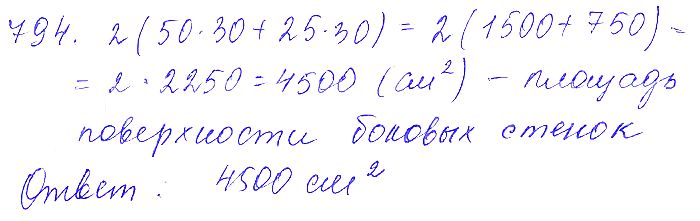 794. 2(50·30+25·30) = 2(1500+750) =
= 2·2250 = 4500 (см²) – площадь
поверхности боковых стенок
Ответ: 4500 см²